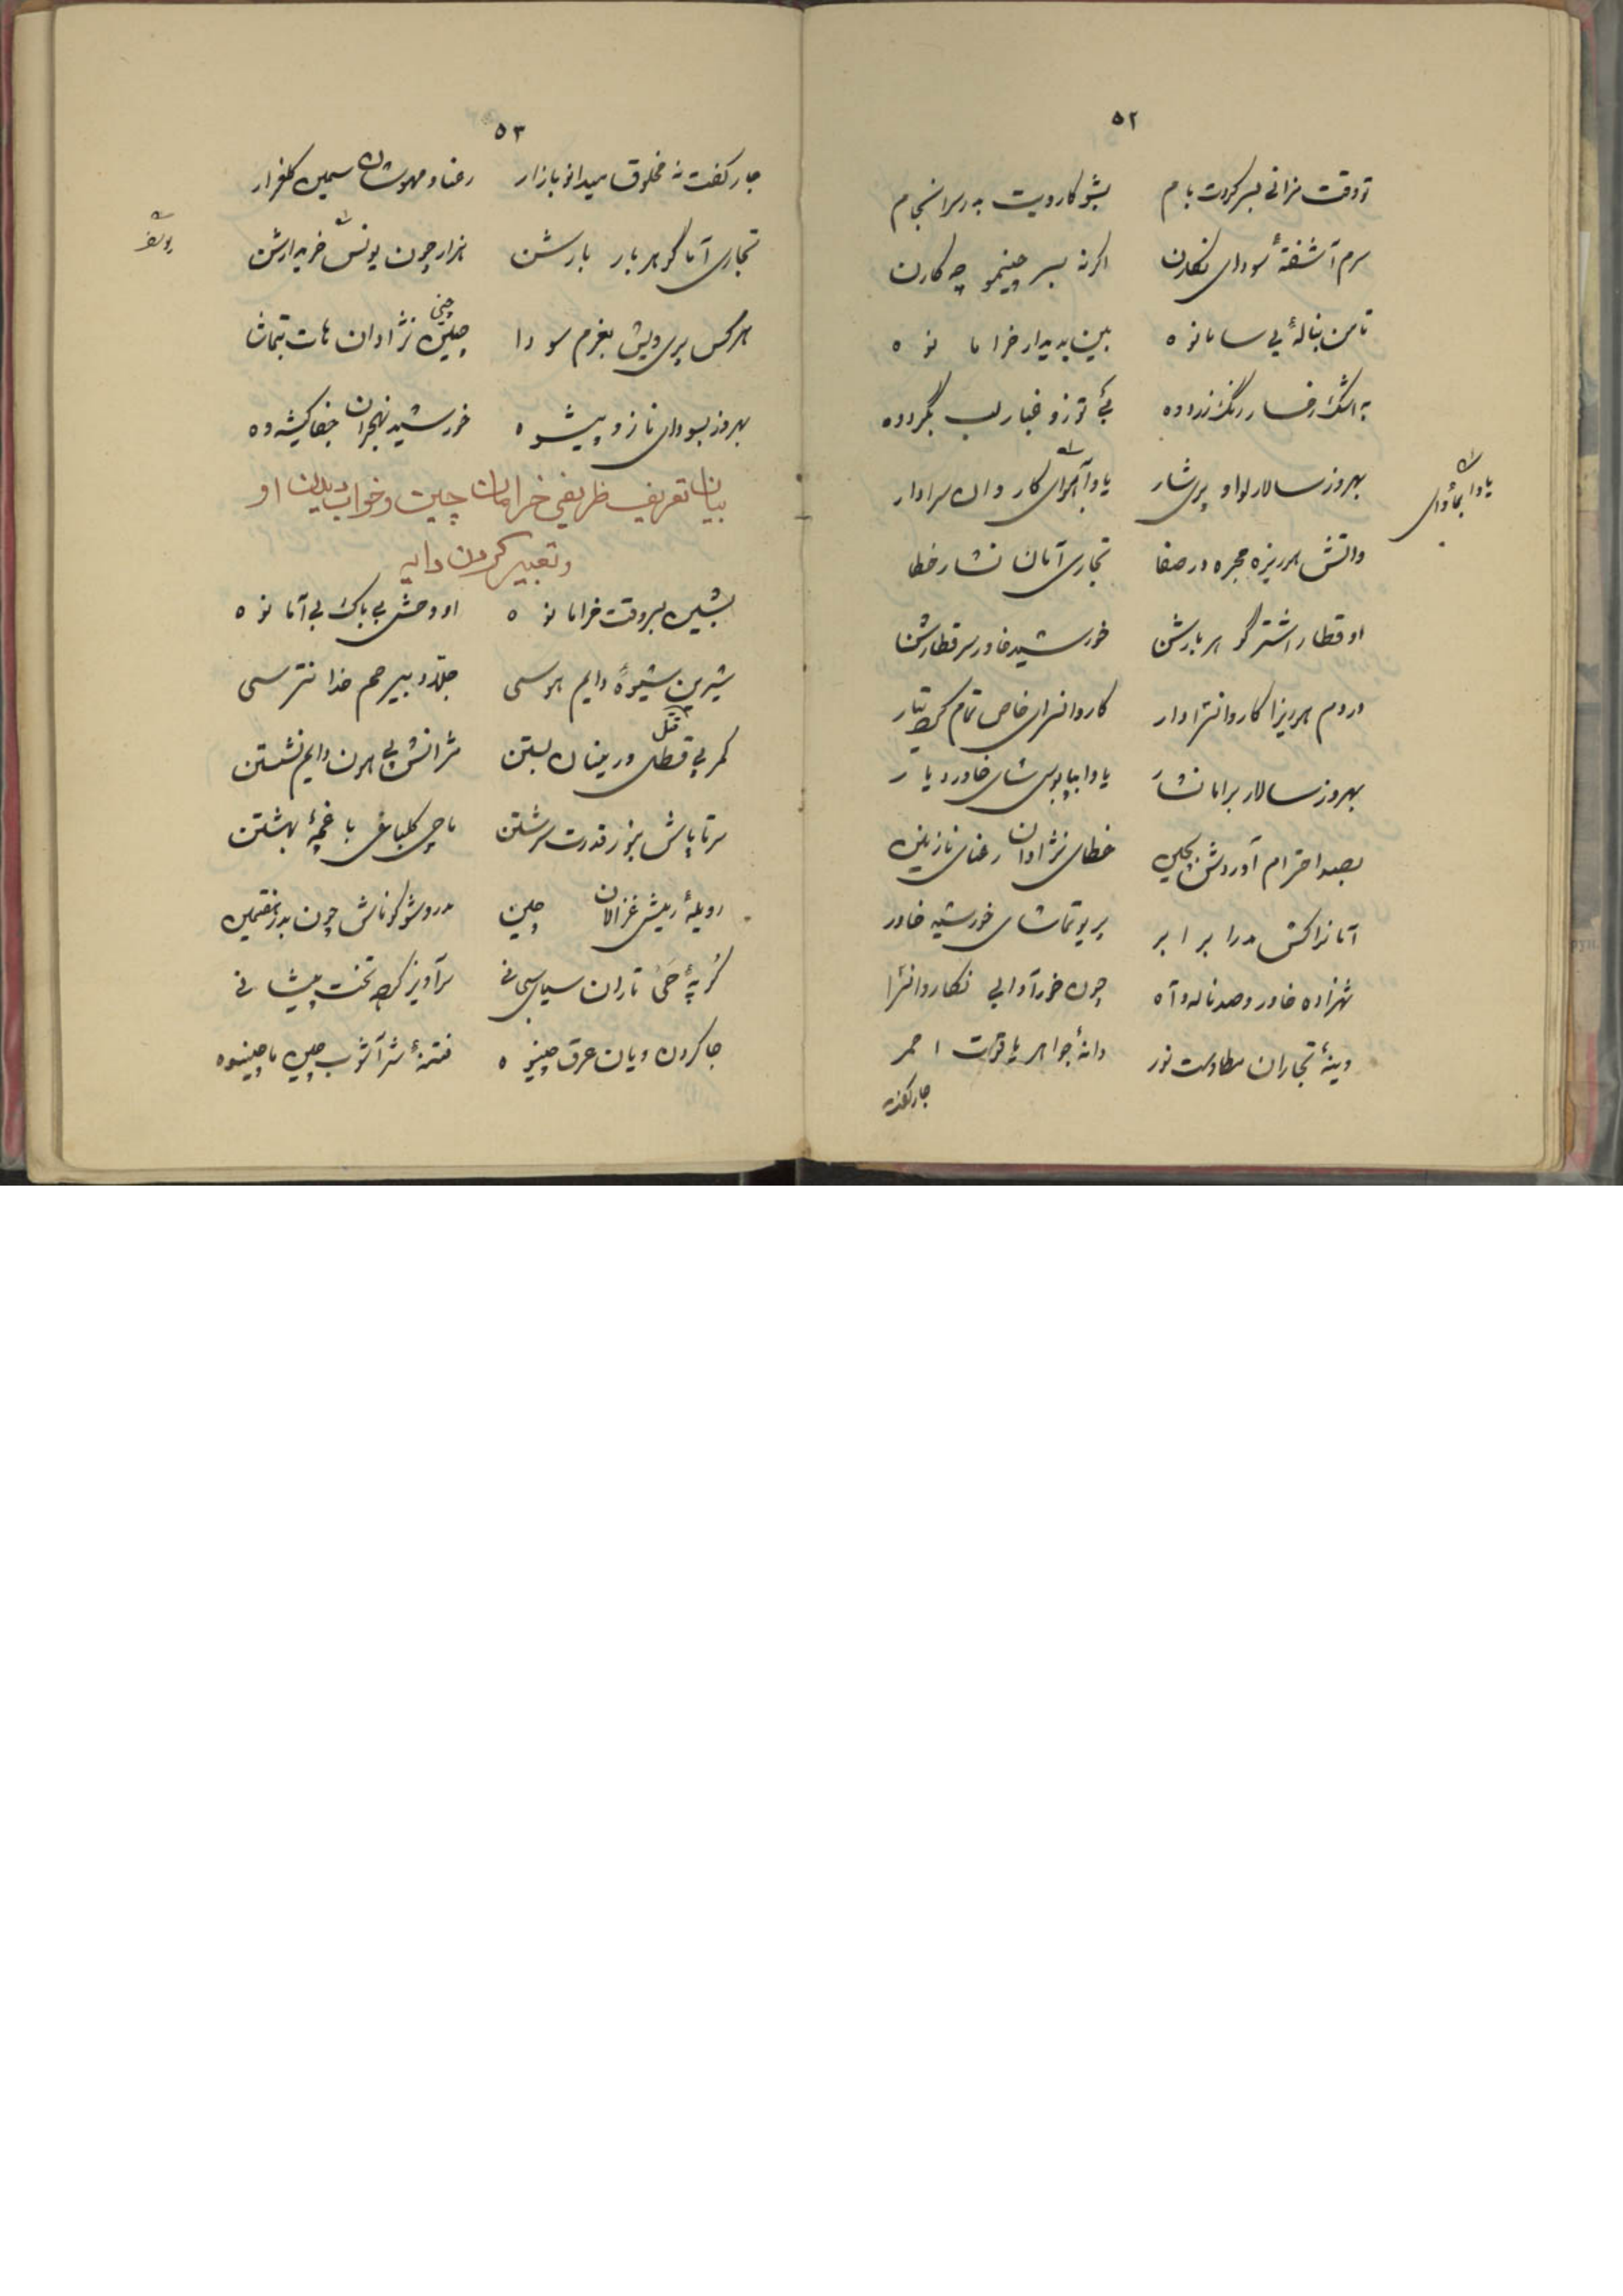 ۵۲
تو وقت مزانی بسر کردت بام بشو کارویت بدر سرانجام
سرم آشفتهٔ سودای نگارن اگرنه بسر چینم چه کارن
تا من بنالهٔ بی سامانوه بین بدیدار خرامانوه
به اشک رخسار رنگ زردوه بی توز و غبار لب بگردوه
بهروز سالار لوا و پری شار یاوا کاروان سرادار
یاوا
واتش هرریزه حجره در صفا تجاری آمان نشار خطا
او قطار اشتر گوهر بارشن خورشید خاور سر قطارشن
دردم هریزا کاروانسرادار کاروانسرای خاص تمام کرد تیار
بهروز سالار برامانشار یاوا بپابوس شای خاور دیار
بصد احترام آوردش بچین خطای نژادان رعنای نازنین
آمانراکش مدرا برابر پریو تماشای خورشید خاور
شهزاده خاور و صد ناله و آه چون خور آوابی نکاروانسرا
وینهٔ تجاران مطاوست نور دانهٔ جواهر یاقوت احمر
جار کفت
۵۳
جار کفت نه مخلوق میدانو بازار رعنا و مهوشان سمین گلعذار
تجاری آما گوهر بار بارشن هزار چون یونس خریدارشن
یوسف
هرکس پری ویش بعزم سودا چین نژادان هات بتماشا
چنی
بهروز بسودای ناز و پیشوه خورشید نهجران جفا کیشوه
بیان تعریف ظریفی خرامان چین و خواب دیدن او
و تعبیر کردن دایه
بشین بروقت خرامانوه او وحشی بی باک بی آمانوه
شیرین شیوهٔ دایم هوسی جلاد و بیرحم خدا نترسی
کمر پی قطل ورمینان بستن مژانش پی هون دایم نشستن
قتل
سر تا پاش بنور قدرت سرشتن ماچی گلباغی با غچهٔ بهشتن
رویلهٔ ریش غزالان چین مدروشو گوناش چون بدر
کرپهٔ خی تاران سیای سیحانی سرآویز کرد تخت پیشانی
جا کردن ویان عرق چینوه فتنهٔ شر آشوب چین ماچینوه